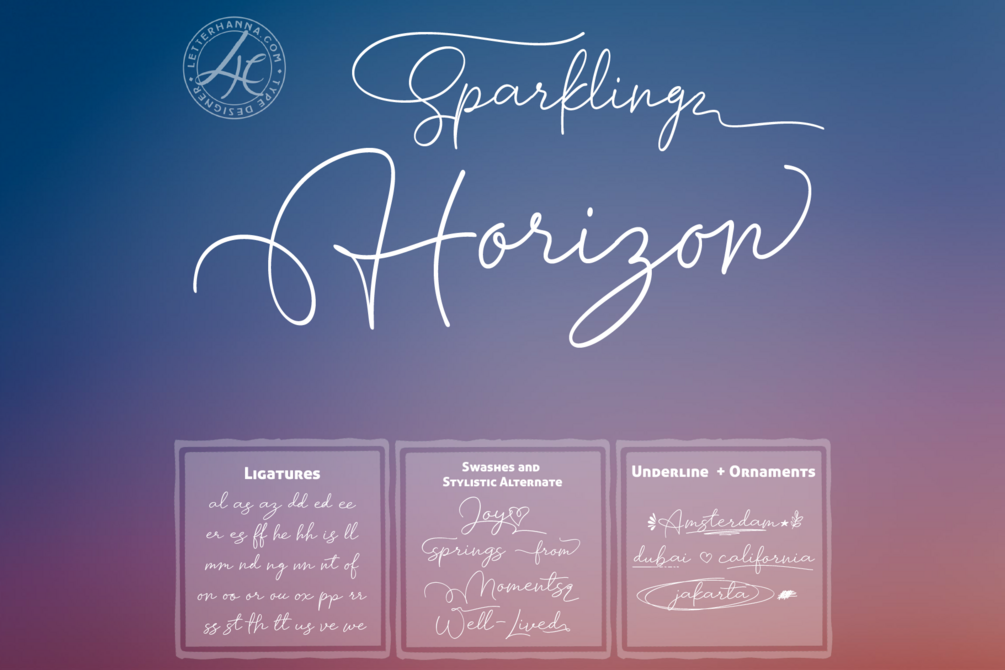 LETTERHANNA.COM
LH
• TYPE DESIGNER •
Sparkling
Horizon
Ligatures
al as az dd ed ee
er es ff he hh is ll
mm nd ng nn nt of
on oo or ou ox pp rr
ss st th tt us ve we
Swashes and
Stylistic Alternate
Joy
springs from
Moments
Well-Lived
Underline + Ornaments
Amsterdam
dubai california
jakarta